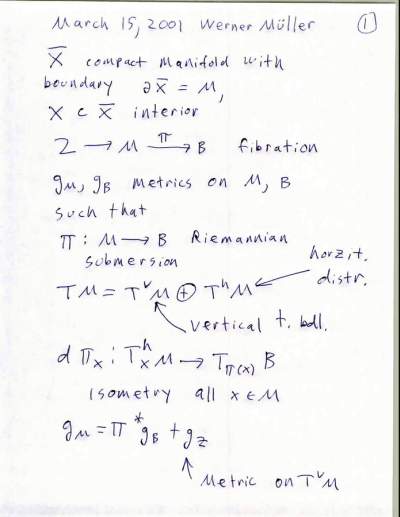 March 15, 2001 Werner Müller ①
X̄ compact manifold with
boundary ∂X̄ = M,
X ⊂ X̄ interior
Z → M →^π B fibration
g_M, g_B metrics on M, B
such that
π : M → B Riemannian
submersion
horz, t.
distr.
TM = T^v M ⊕ T^h M
vertical t. bdl.
d π_x : T_x^h M → T_π(x) B
isometry all x ∈ M
g_M = π^* g_B + g_Z
metric on T^v M